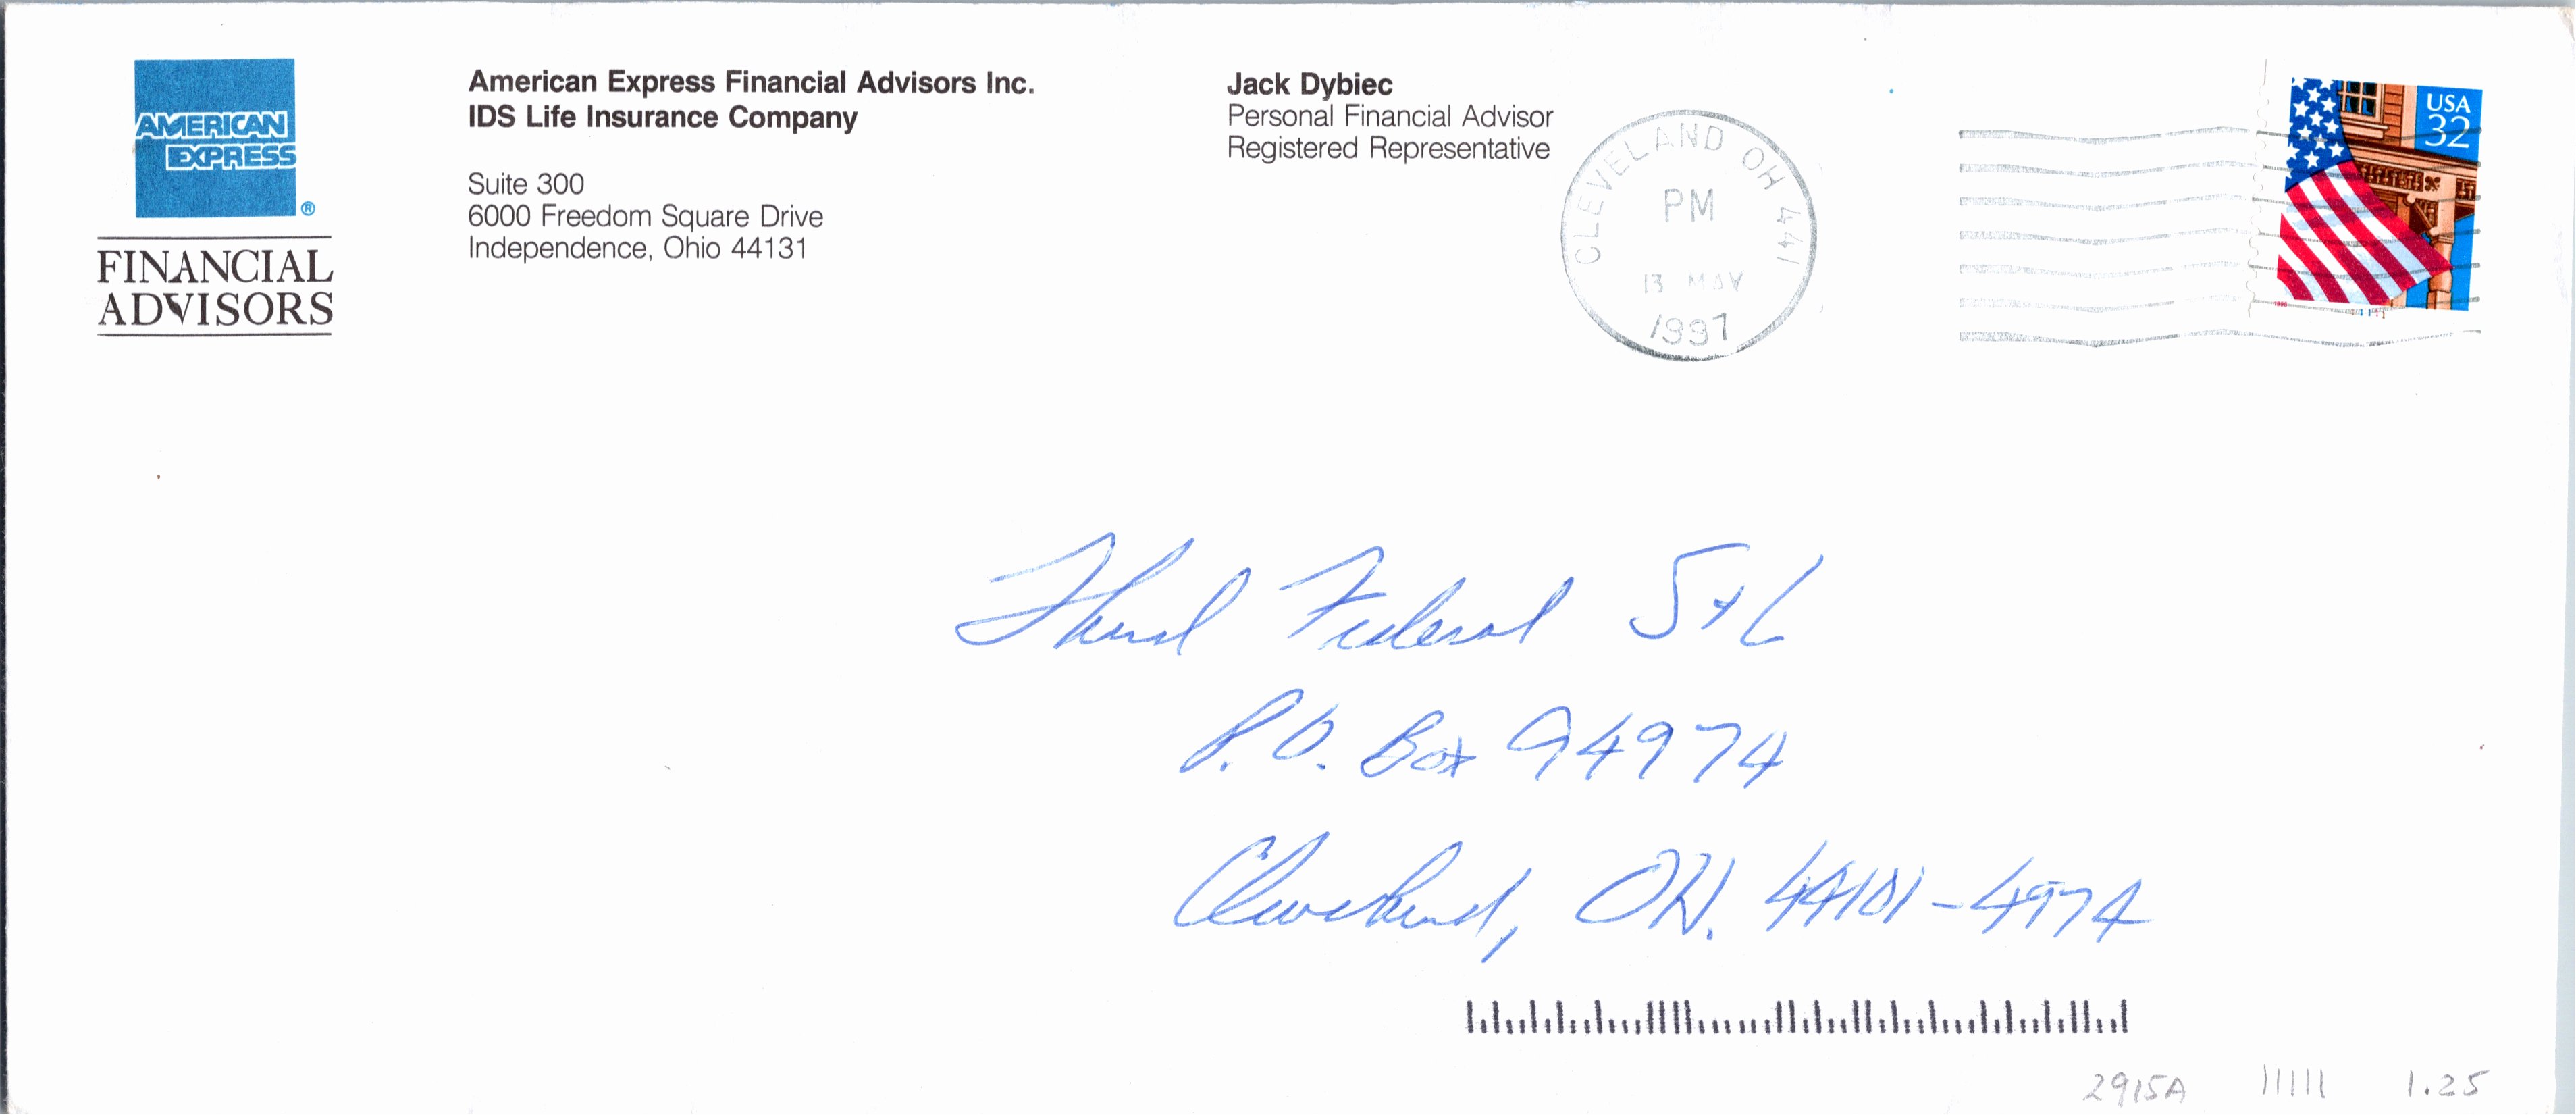 AMERICAN
EXPRESS
®
FINANCIAL
ADVISORS
American Express Financial Advisors Inc.
IDS Life Insurance Company
Suite 300
6000 Freedom Square Drive
Independence, Ohio 44131
Jack Dybiec
Personal Financial Advisor
Registered Representative
CLEVELAND OH 441
PM
13 MAY
1997
USA
32
Third Federal S+L
P.O. Box 94974
Cleveland, OH. 44101-4974
2915A 11111 1.25